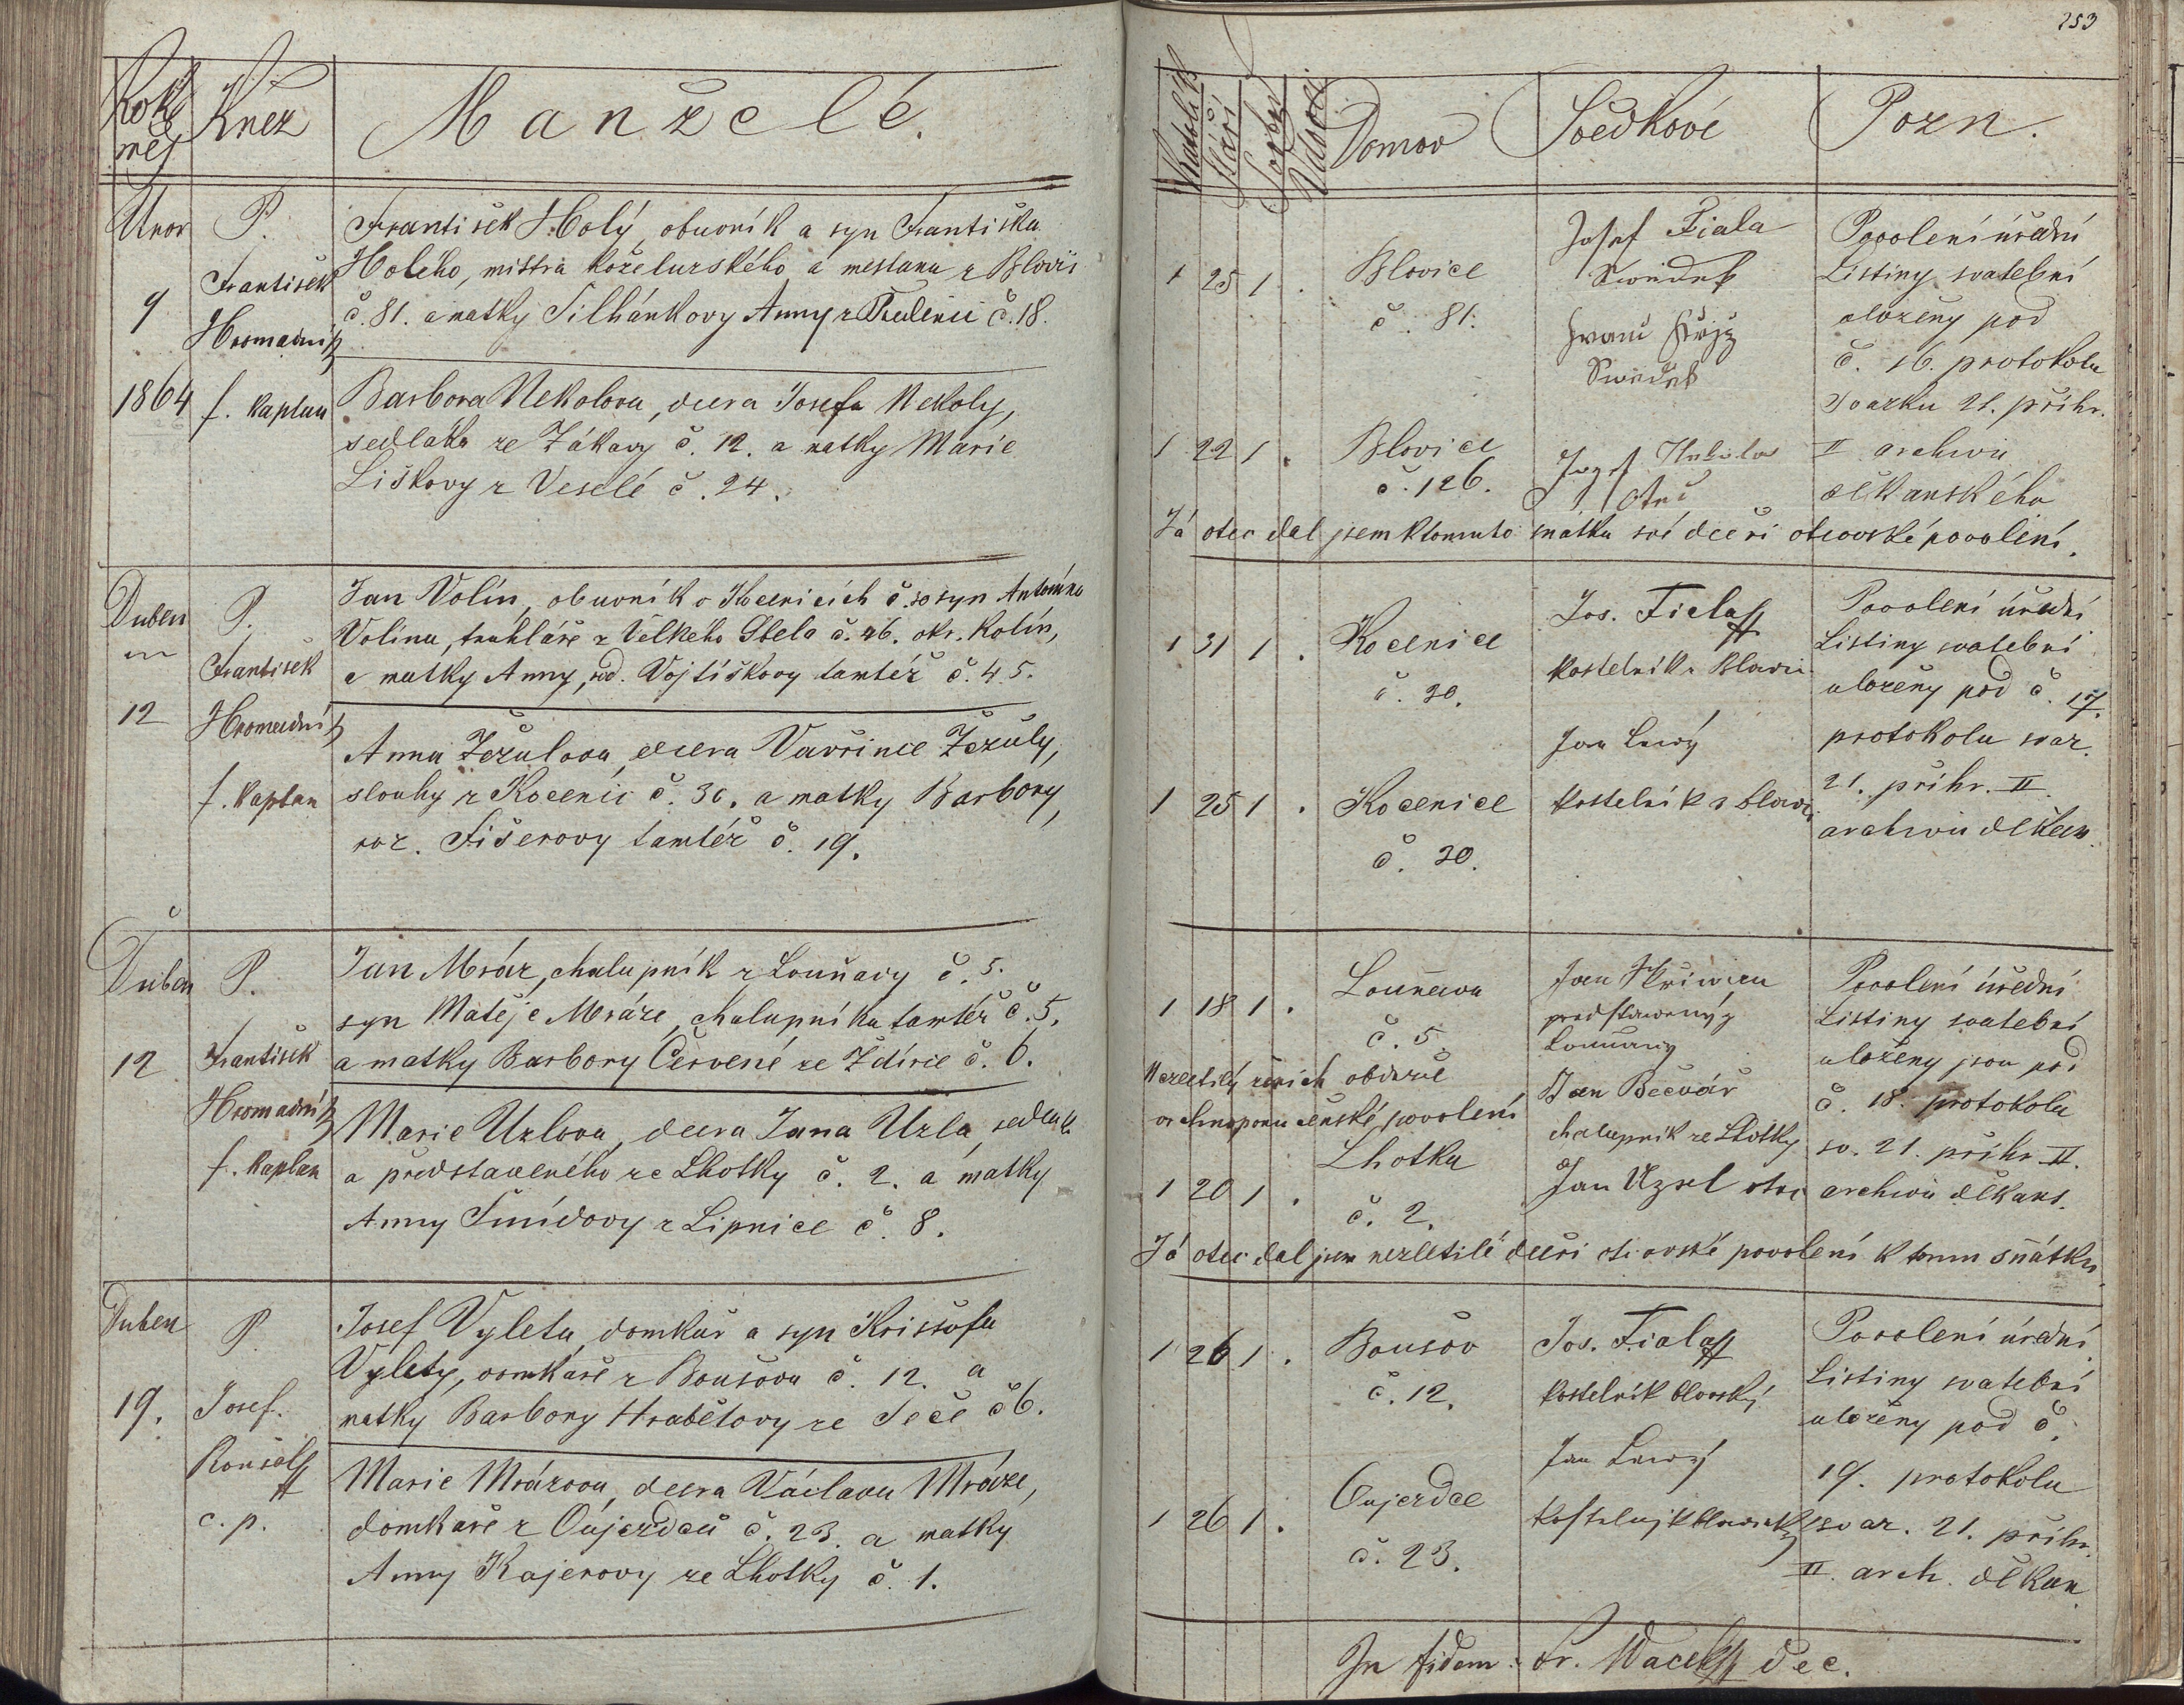 253
Rok a
měs
Kněz
Manželé.
Katolík
Stáří
Domov
Svědkové
Pozn.
Unor
9
1864
P.
František
Hromadník
f. kaplan
František Holý, obuvník a syn Františka
Holého, mistra koželužského a mešťana z Blovic
č. 81. a matky Silhánkovy Anny z č. 18.
Barbora Nekolova, dcera Josefa Nekoly,
sedláka ze Žákavy č. 12. a matky Marie
Liškovy z Veselé č. 24.
1 25 1 .
Blovice
č. 81.
Josef Fiala
Swědek
Swědek
1 22 1 .
Blovice
č. 126.
Josef
Otec
Povolení úřední
Listiny svatební
uloženy pod
č. 16. protokolu
svazku 21. přihr.
II archivu
děkanského
Já otec dal jsem k tomuto sňatku své dceři otcovské povolení.
Duben
12
P.
František
Hromadník
f. kaplan
Jan Volín, obuvník v Kocenicích č. 30 syn Antonína
Volína, truhláře z Velkého Sbela č. 46. okr. Kolín,
a matky Anny, rod. Vojtíškovy tamtéž č. 45.
Anna Žežulova, dcera Vavřince Žežuly,
slouhy z Kocenic č. 30. a matky Barbory,
roz. Fišerovy tamtéž č. 19.
1 31 1 .
Kocenice
č. 30.
Jos. Fiala
kostelník z Blovic
Jan Lewý
kostelník z blovic
1 25 1 .
Kocenice
č. 30.
Povolení úřední
Listiny svatební
uloženy pod č. 17.
protokolu svaz.
21. přihr. II.
archivu děkan.
Duben
12
P.
František
Hromadník
f. kaplan
Jan Mráz, chalupník z Louňavy č. 5.
syn Matěje Mráze, chalupníka tamtéž č. 5.
a matky Barbory Červené ze Ždírce č. 6.
Marie Uzlova, dcera Jana Uzla, sedláka
a představeného ze Lhotky č. 2. a matky
Anny Šmídovy z Lipnice č. 8.
1 18 1 .
Louňava
č. 5.
Nezletilý ženich obdržel
povolení
1 20 1 .
Lhotka
č. 2.
Jan Skřiwan
představený z
Louňawy
Jan Bečvář
chalupník ze Lhotky
Jan Uzel otec
Povolení úřední
Listiny svatební
uloženy jsou pod
č. 18. protokolu
sv. 21. přihr. II.
archivu děkans.
Já otec dal jsem nezletilé dceři otcovské povolení k tomu sňátku.
Duben
19.
P.
Josef
c. p.
Josef Vyleta, domkář a syn Krištofa
Vylety, domkáře z Boušova č. 12. a
matky Barbory Hrabětovy ze Seče č 6.
Marie Mrázova, dcera Václava Mráze,
domkáře z Oujezdců č. 23. a matky
Anny Kajerovy ze Lhotky č. 1.
1 26 1 .
Boušov
č. 12.
Jos. Fiala
kostelník blovský
Jan Lewý
1 26 1 .
Oujezdce
č. 23.
Povolení úřední.
Listiny svatební
uloženy pod č.
19. protokolu
svaz. 21. přihr.
II. arch. děkan.
In fidem: Fr. Wacek dec.